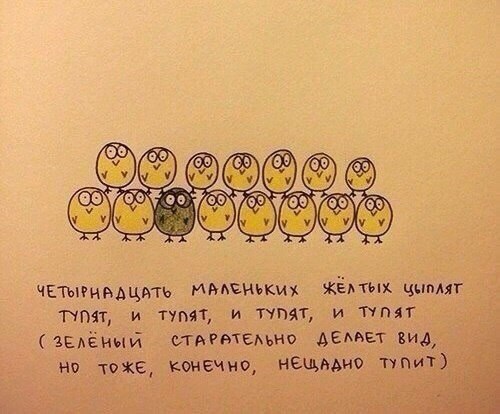 ЧЕТЫРНАДЦАТЬ МАЛЕНЬКИХ ЖЁЛТЫХ ЦЫПЛЯТ
ТУПЯТ, И ТУПЯТ, И ТУПЯТ, И ТУПЯТ
( ЗЕЛЁНЫЙ СТАРАТЕЛЬНО ДЕЛАЕТ ВИД,
НО ТОЖЕ, КОНЕЧНО, НЕЩАДНО ТУПИТ)